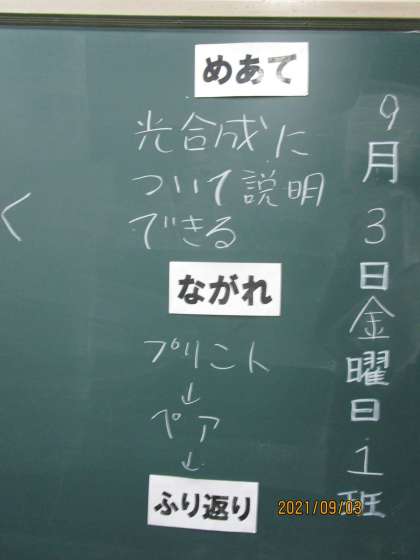 9月3日金曜日1班
めあて
光合成に
ついて説明
できる
ながれ
プリント
↓
ペア
↓
ふり返り
く
2021/09/03